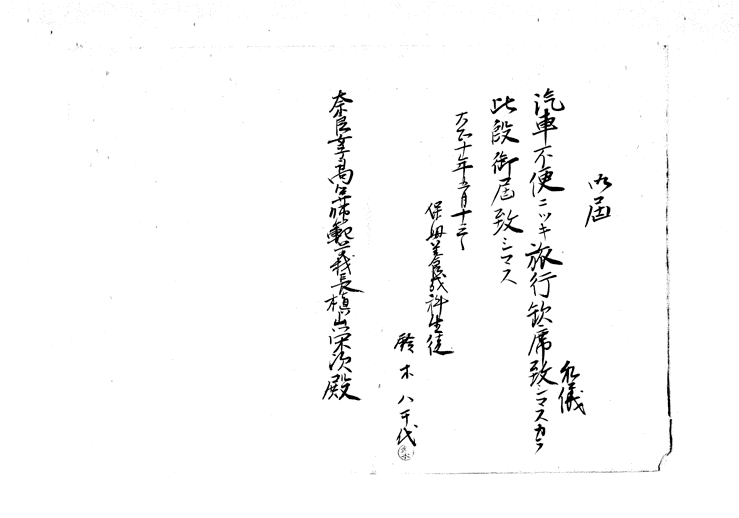 御届
私儀
汽車不便ニツキ旅行欠席致シマスカラ
此段御届致シマス
大正十年五月十三日
保姆養成科生徒
鈴木八千代
奈良女子高等師範学校長槙山栄次殿